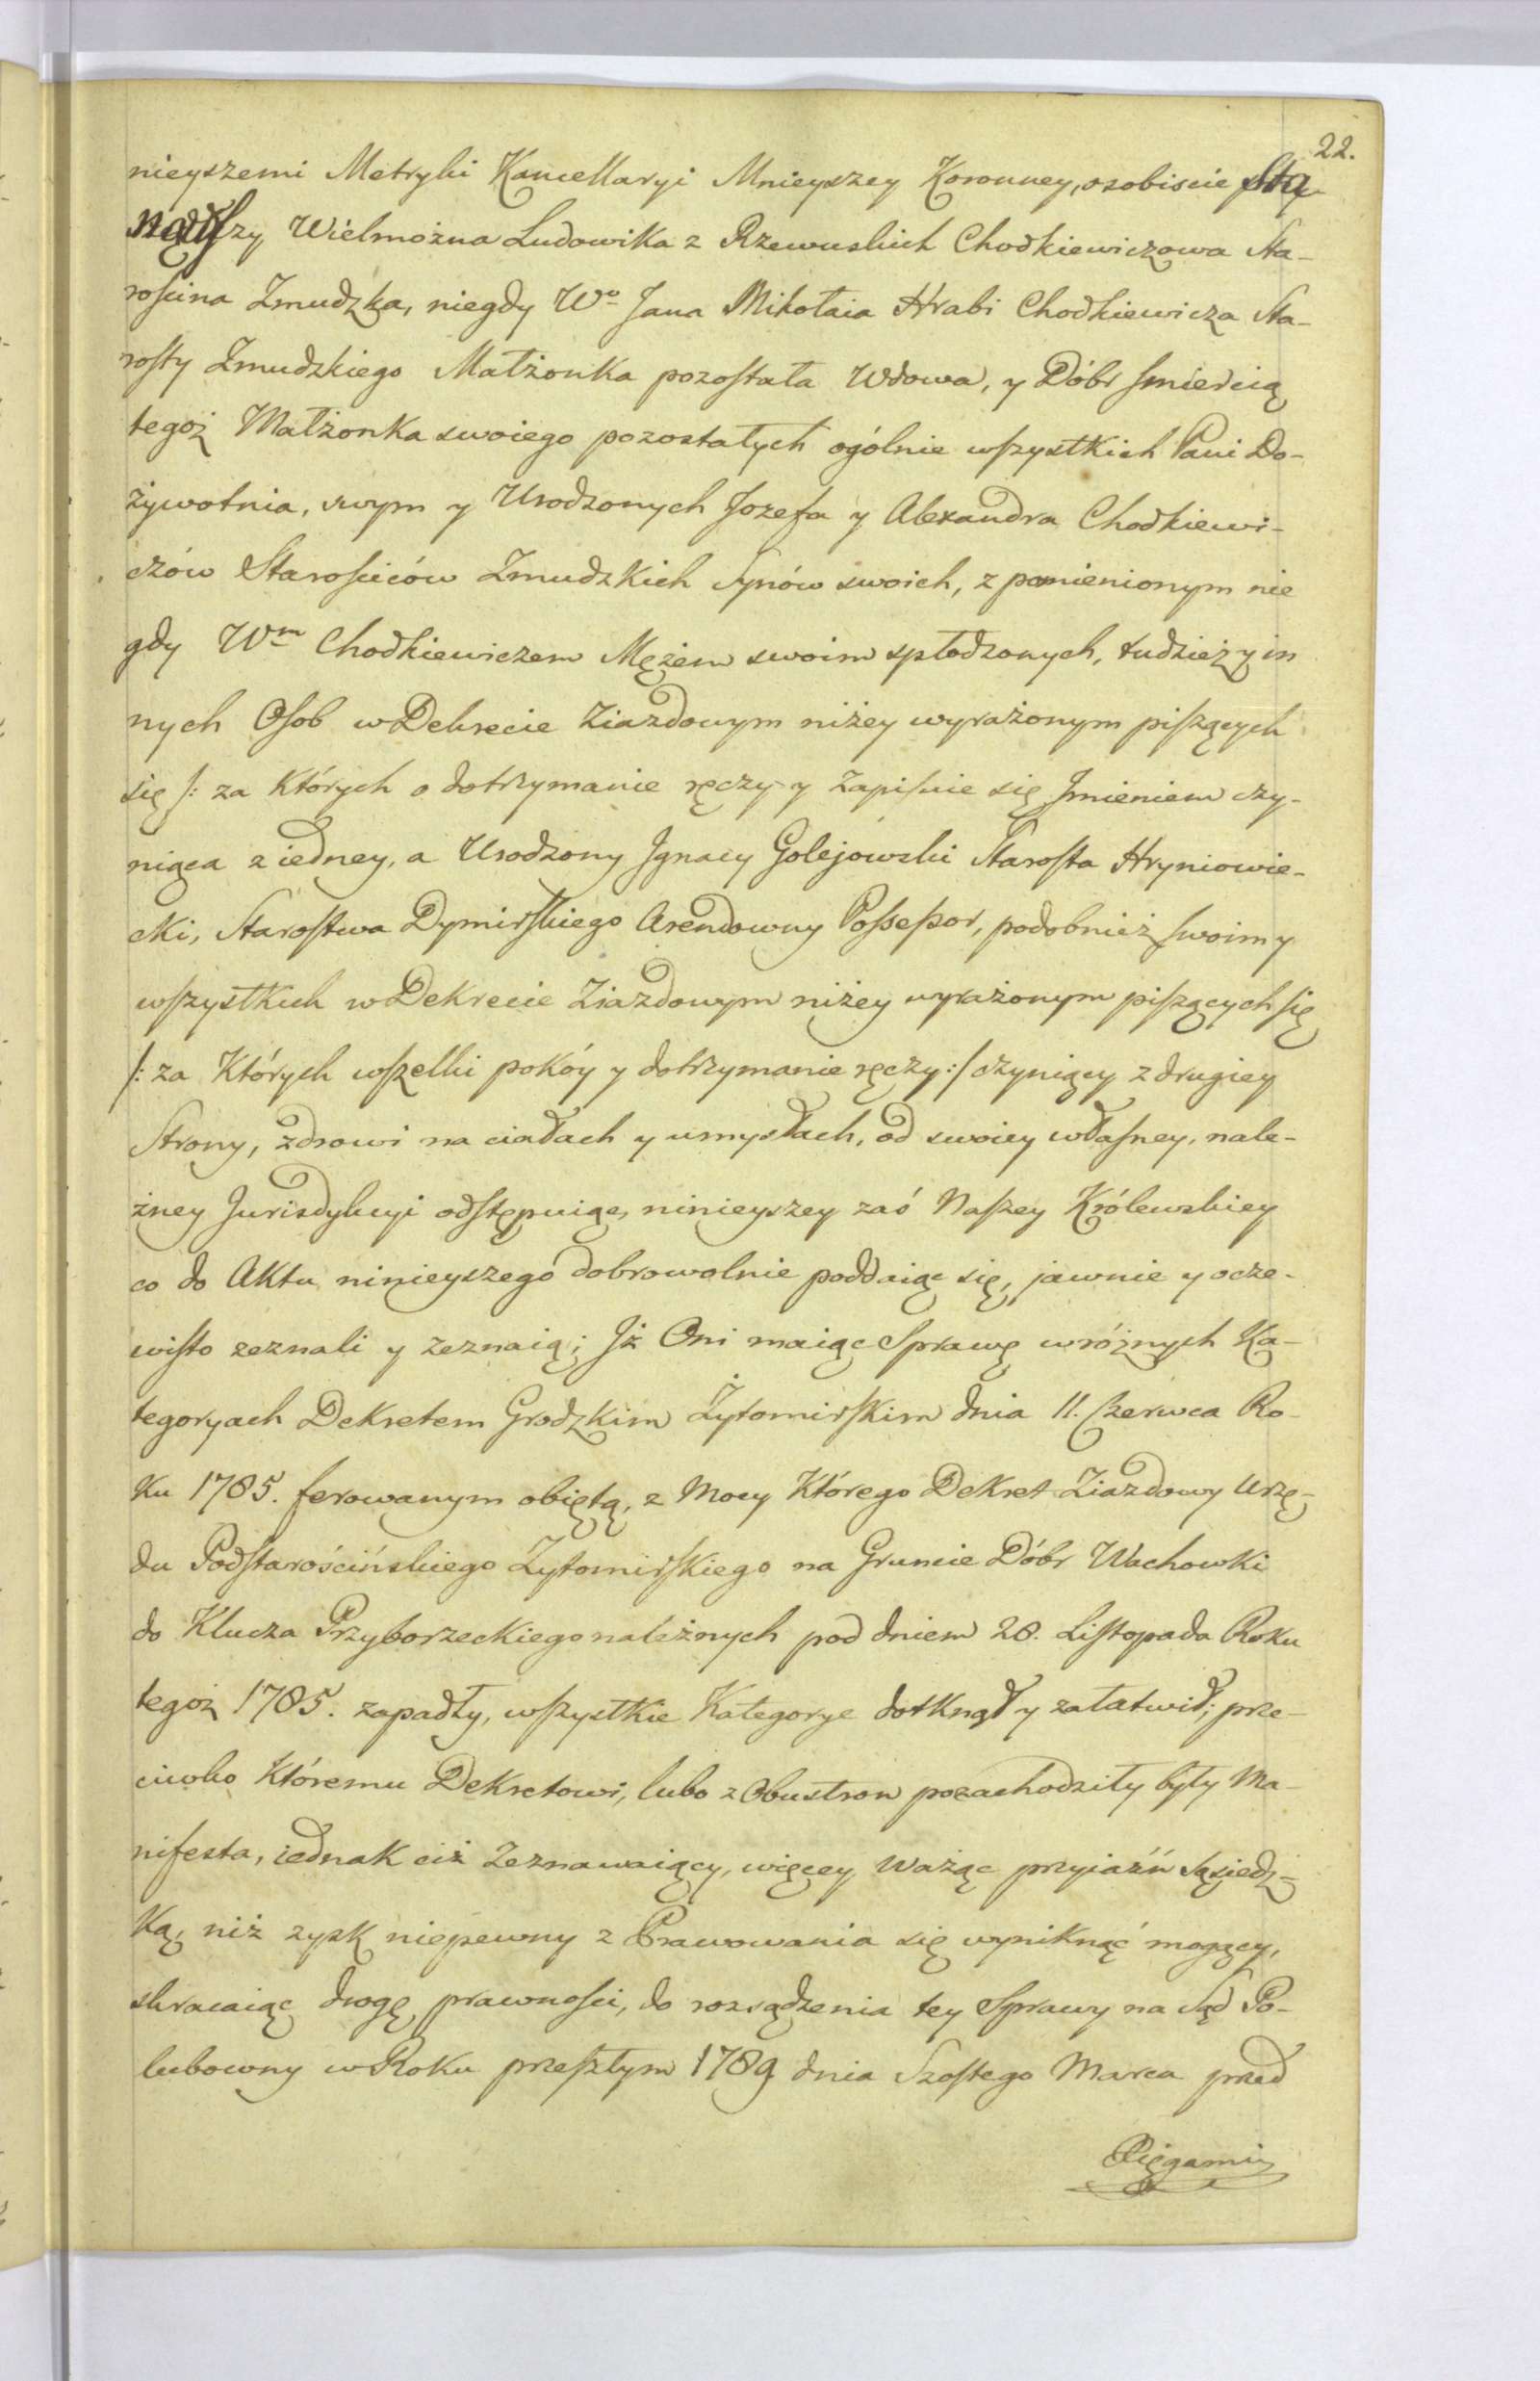 22.
nieyszemi Metryki Kancellaryi Mnieyszey Koronney, osobiscie sta-
nąwszy Wielmożna Ludowika z Rzewuskich Chodkiewiczowa Sta-
roscina Zmudzka, niegdy Wo Jana Mikołaia Hrabi Chodkiewicza Sta-
rosty Zmudzkiego Małżonka pozostała Wdowa, y Dóbr smiercią
tegoż Małżonka swoiego pozostałych ogólnie wszystkich Pani Do-
żywotnia, swym y Urodzonych Jozefa y Alexandra Chodkiewi-
czów Starosciców Zmudzkich Synów swoich, z pomienionym nie
gdy Wm Chodkiewiczem Mężem swoim spłodzonych, tudzież y in
nych Osob w Dekrecie Ziazdowym niżey wyrażonym piszących
się /: za Których o dotrzymanie ręczy y zapisuie się Jmieniem czy-
niąca z iedney, a Urodzony Jgnacy Golejowski Starosta Hryniowie-
cki, Starostwa Dymirskiego Arendowny Possessor, podobnież swoim y
wszystkich w Dekrecie Ziazdowym niżey wyrażonym piszących się
/: za Których wszelki pokóy y dotrzymanie ręczy :/ czyniący z drugiey
Strony, zdrowi na ciałach y umysłach, od swoiey własney, nale-
żney Jurisdykcyi odstępuiąc, ninieyszey zaś Naszey Królewskiey
co do Aktu ninieyszego dobrowolnie poddaiąc się, jawnie y ocze-
wisto zeznali y zeznaią; Jż Oni maiąc Sprawę w różnych Ka-
tegoryach Dekretem Grodzkim Żytomirskim dnia 11. Czerwca Ro-
ku 1785. ferowanym obiętą, z Mocy Którego Dekret Ziazdowy Urzę-
du Podstarościńskiego Zytomirskiego na Gruncie Dóbr Wachowki
do Klucza Przyborzeckiego należnych pod dniem 28. Listopada Roku
tegoż 1785. zapadły, wszystkie Kategorye dotknął y załatwił; prze-
ciwko Któremu Dekretowi, lubo z Obustron pozachodziły były Ma-
nifesta, iednak ciż Zeznawaiący, więcey Ważąc przyiaźń sąsiedz-
Ką, niż zysk niepewny z Prawowania się wyniknąć mogący,
skracaiąc drogę prawnosci, do rozsądzenia tey Sprawy na Sąd Po-
lubowny w Roku przeszłym 1789 dnia Szostego Marca przed